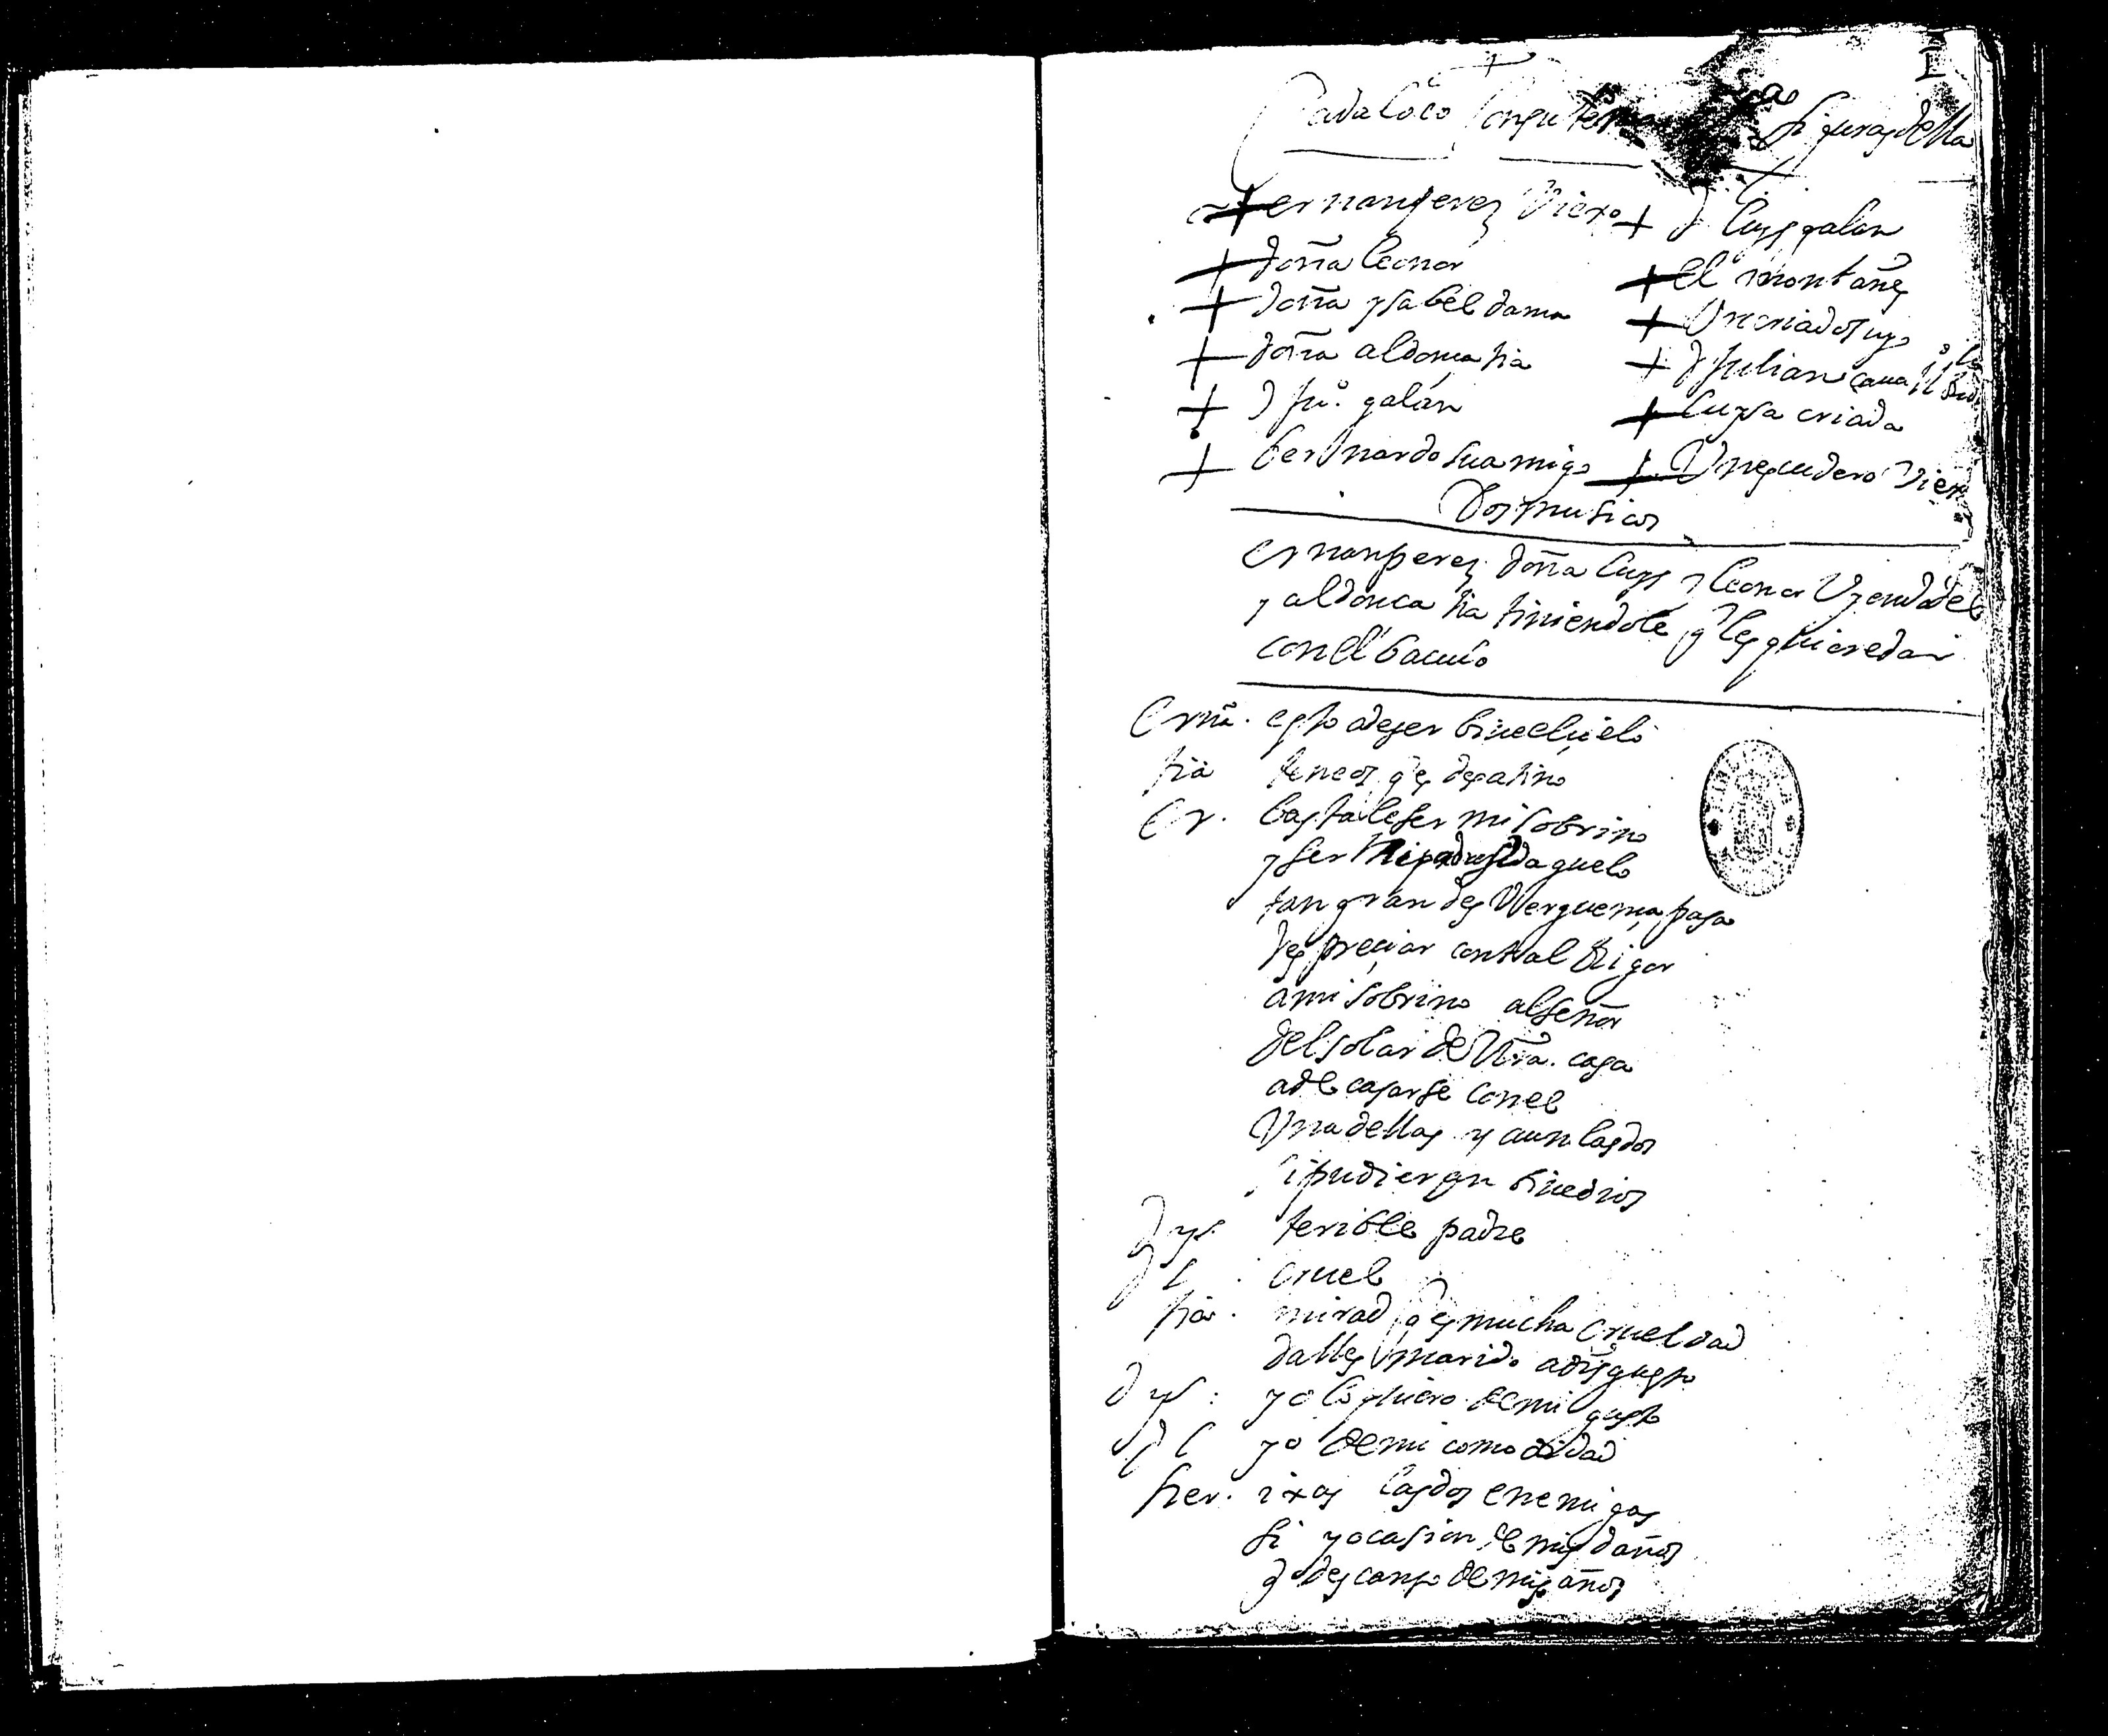 I
Cada loco con su tema figuras della
ernan perez viexo + d luys galan
+ doña leonor + el montañes
+ doña ysabel dama + Un criado suyo
+ doña aldonça tia + d Julian caua
+ d juº. galán + luysa criada
+ bernardo su amigo + Un escudero viexo
Dos musicos
ernan perez doña luys y leonor
y aldonça tia tiniendole q les quiere dar
con el baculo
Erna. esto a de ser biue el çielo
tia teneos q es desatino
Er. basta le ser mi sobrino
y ser aguelo
tan grande Verguença pasa
despreçiar con tal Rigor
a mi sobrino al señor
del solar de Nra. casa
a de casarse con el
Una dellas y aun las dos
si pudieran biue dios
d ys. terible padre
d l. cruel
tia. mirad q es mucha crueldad
dalles marido a disgusto
d ys: yo lo quiero de mi gusto
d l yo de mi comodidad
her. ixas las dos enemigas
si y ocasion de mis daños
q descanso de mis años